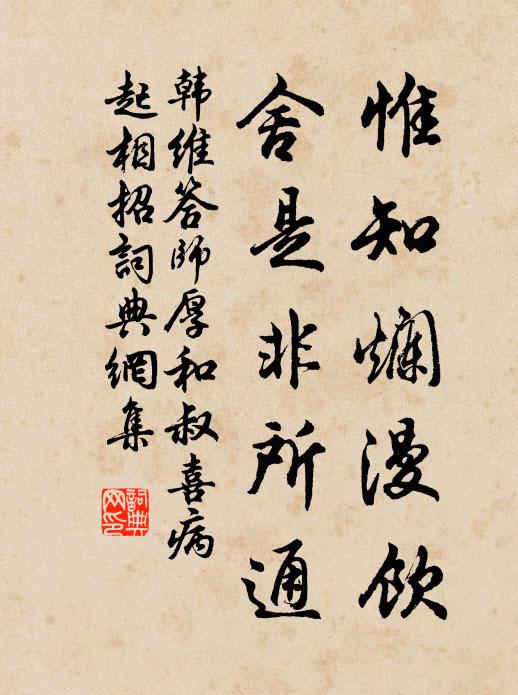 惟知爛漫飲
舍是非所通
韩維答師厚和叔喜病
起相招詞典網集
詞典
网印